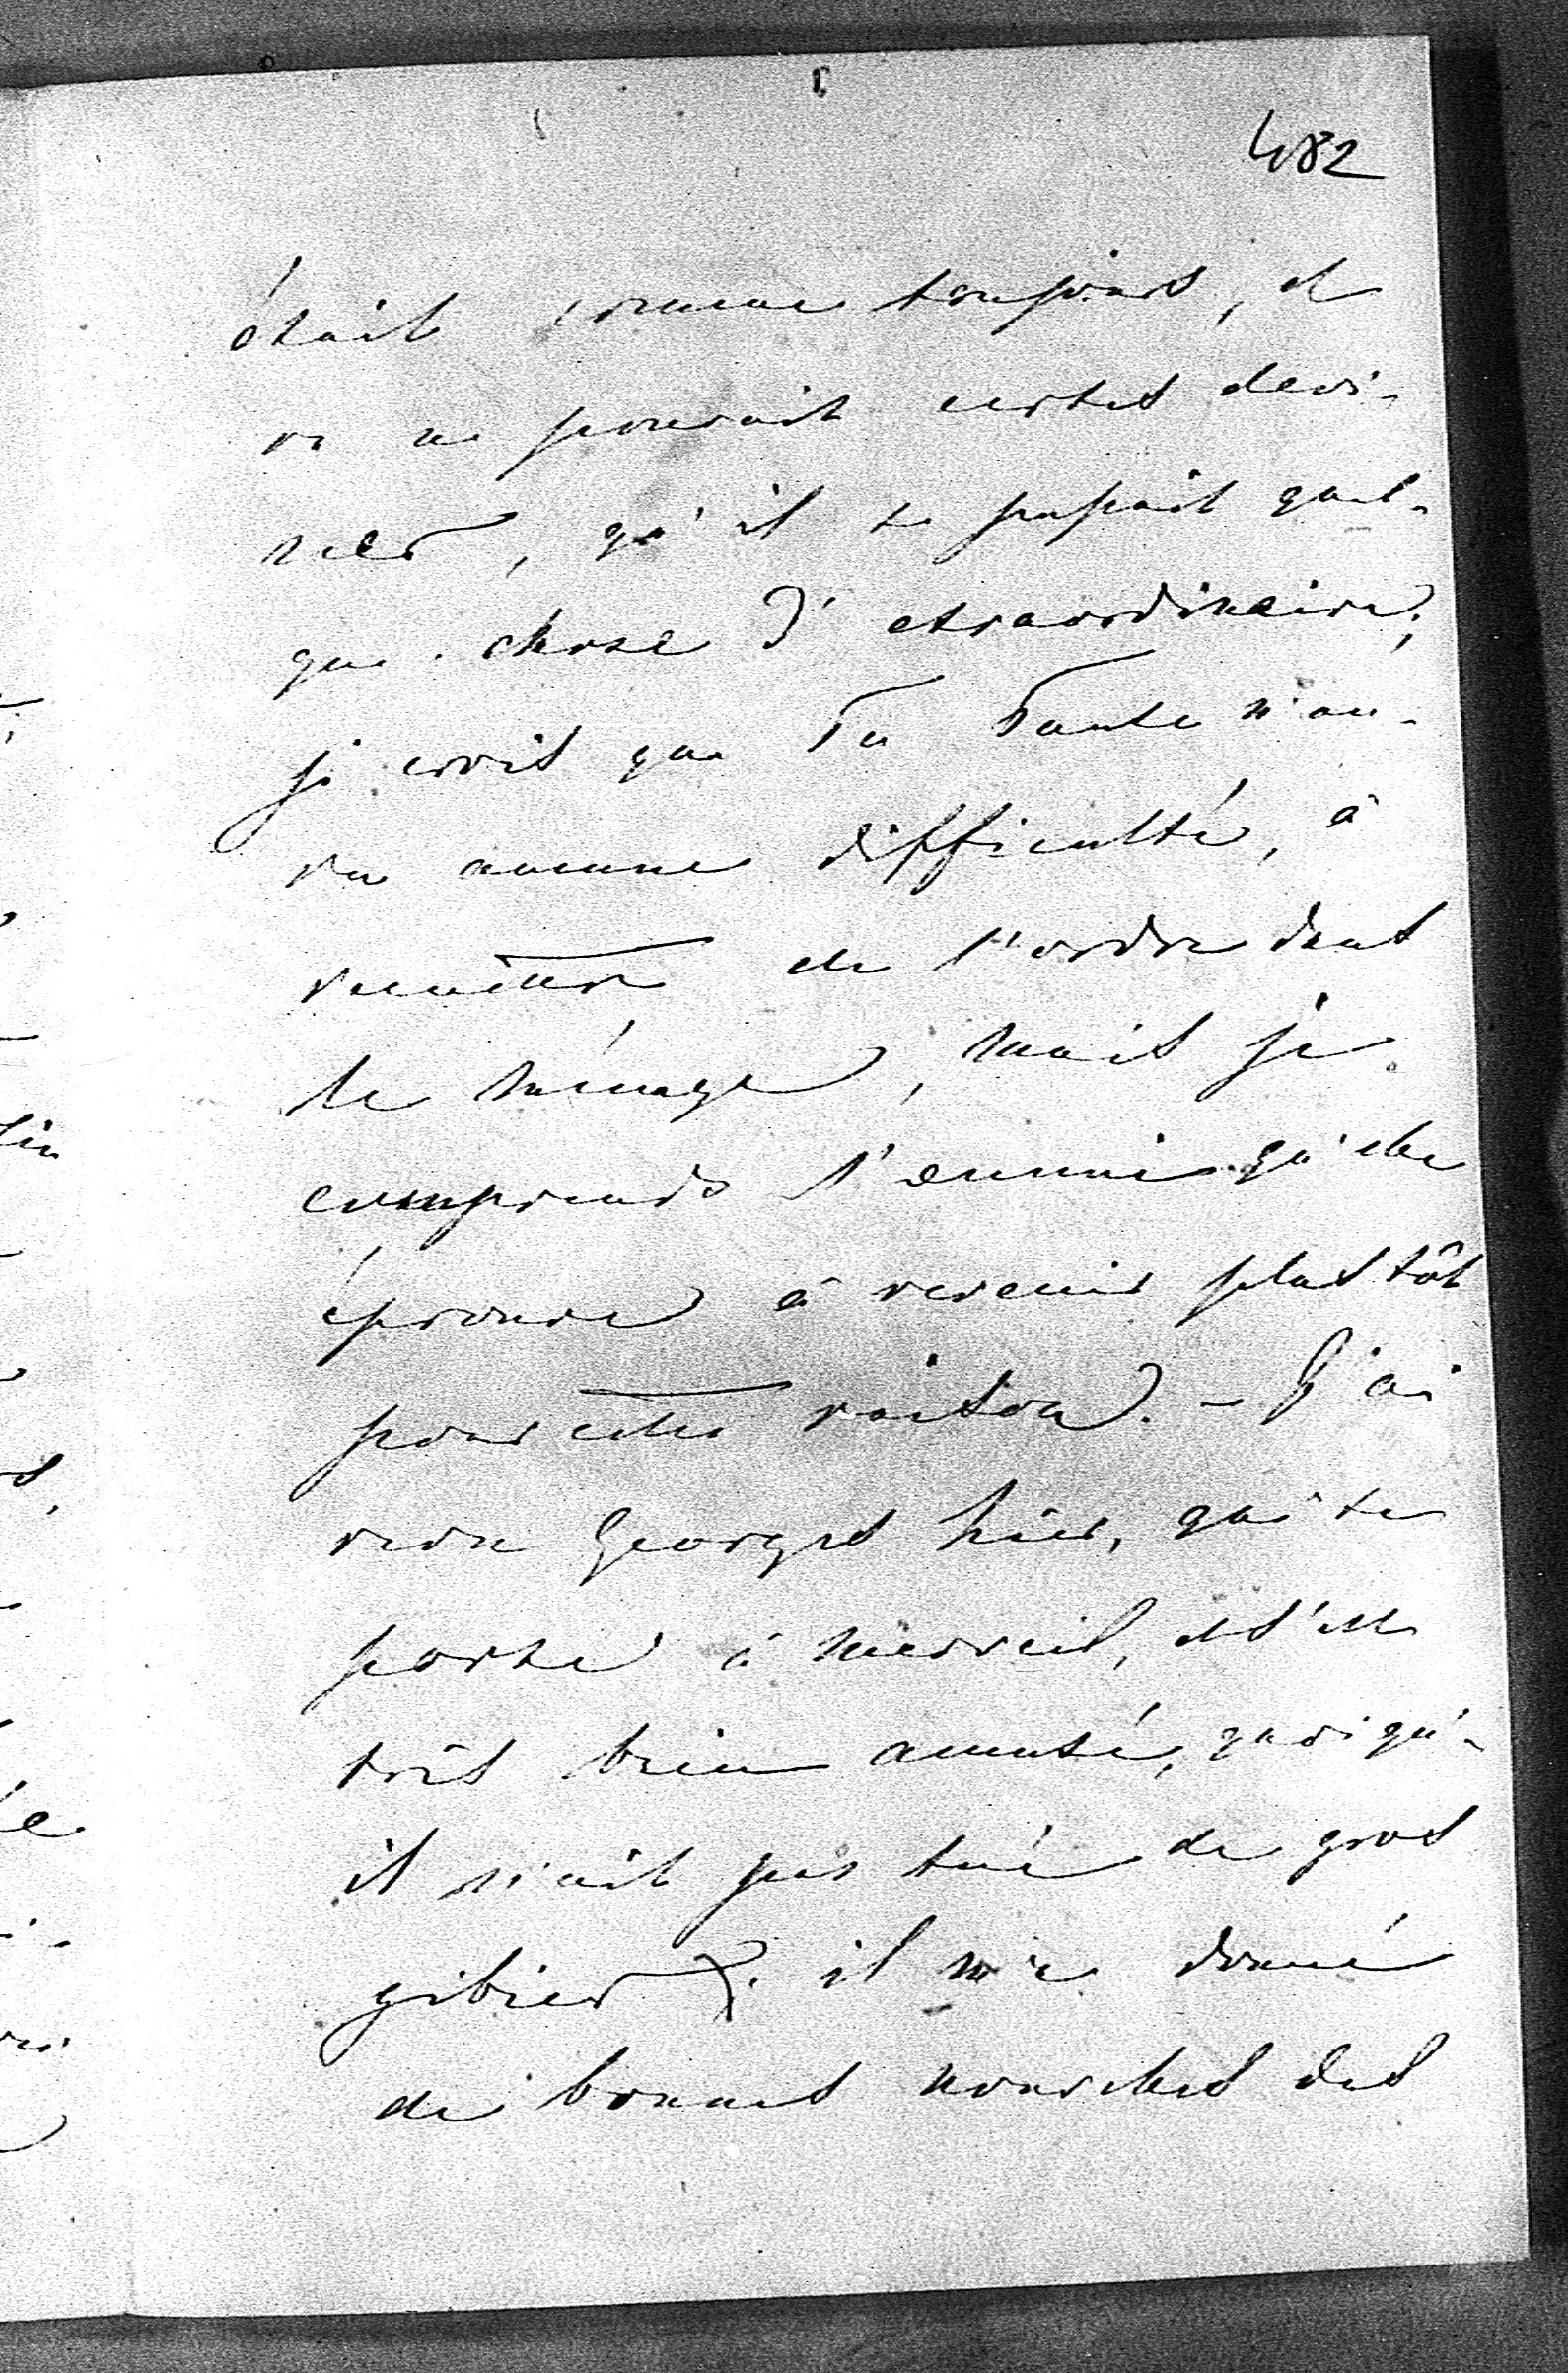 482
était comme toujours, et
on ne pouvait certes devi-
ner, qu'il se passait quel-
que chose d'extraordinaire;
je crois que Ta Tante n'au-
ra aucune difficulté, à
remettre de l'ordre dans
le ménage, mais je
comprends l'ennui qu'elle
éprouve à revenir plus tôt
pour cette raison. – J'ai
revu Georges hier, qui se
porte à merveil, et s'est
très bien amusé, quoiqu'-
il n'ait pas tué de gros
gibier. il m'a donné
de bonnes nouvelles des